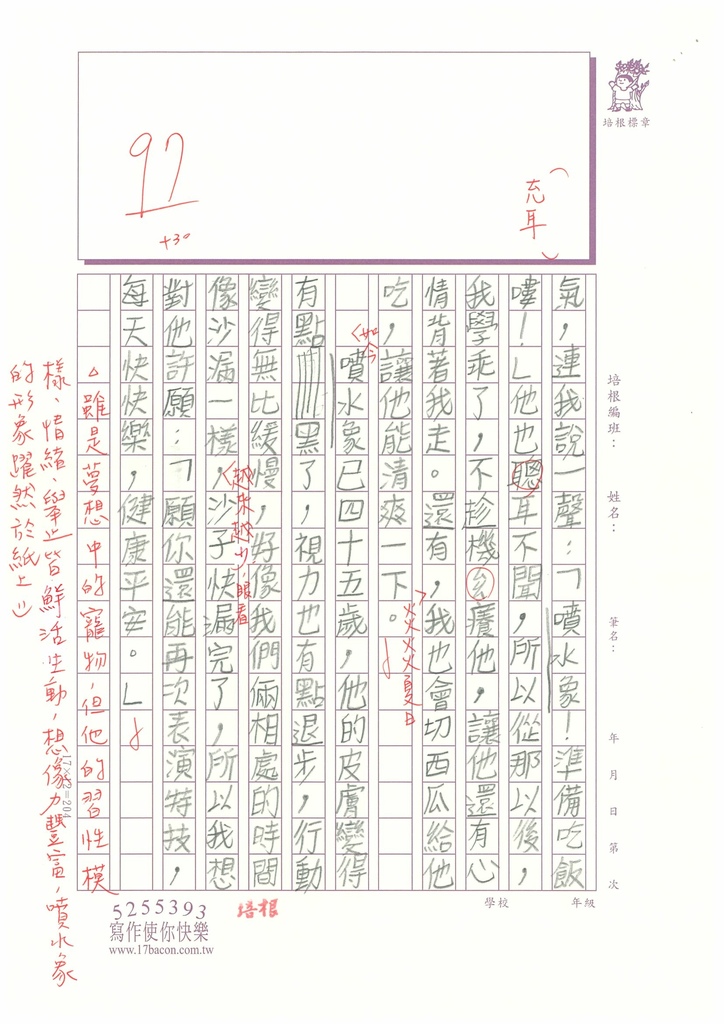 培根標章
97
+30
（充耳）
培根編班：
姓名：
筆名：
年 月 日 第 次
學校
年級
氣，連我說一聲：「噴水象！準備吃飯
嘍！」他也聰耳不聞，所以從那以後，
我學乖了，不趁機幺癢他，讓他還有心
情背著我走。還有，我也會切西瓜給他
炎炎夏日
吃，讓他能清爽一下。
如今
噴水象已四十五歲，他的皮膚變得
有點黑了，視力也有點退步，行動
變得無比緩慢，好像我們倆相處的時間
越來越少，眼看
像沙漏一樣，沙子快漏完了，所以我想
對他許願：「願你還能再次表演特技，
每天快快樂，健康平安。」
△雖是夢想中的寵物，但他的習性模
樣、情緒、舉止皆鮮活生動，想像力豐富，噴水象
的形象躍然於紙上！
17×12=204
5255393
寫作使你快樂
www.17bacon.com.tw
培根